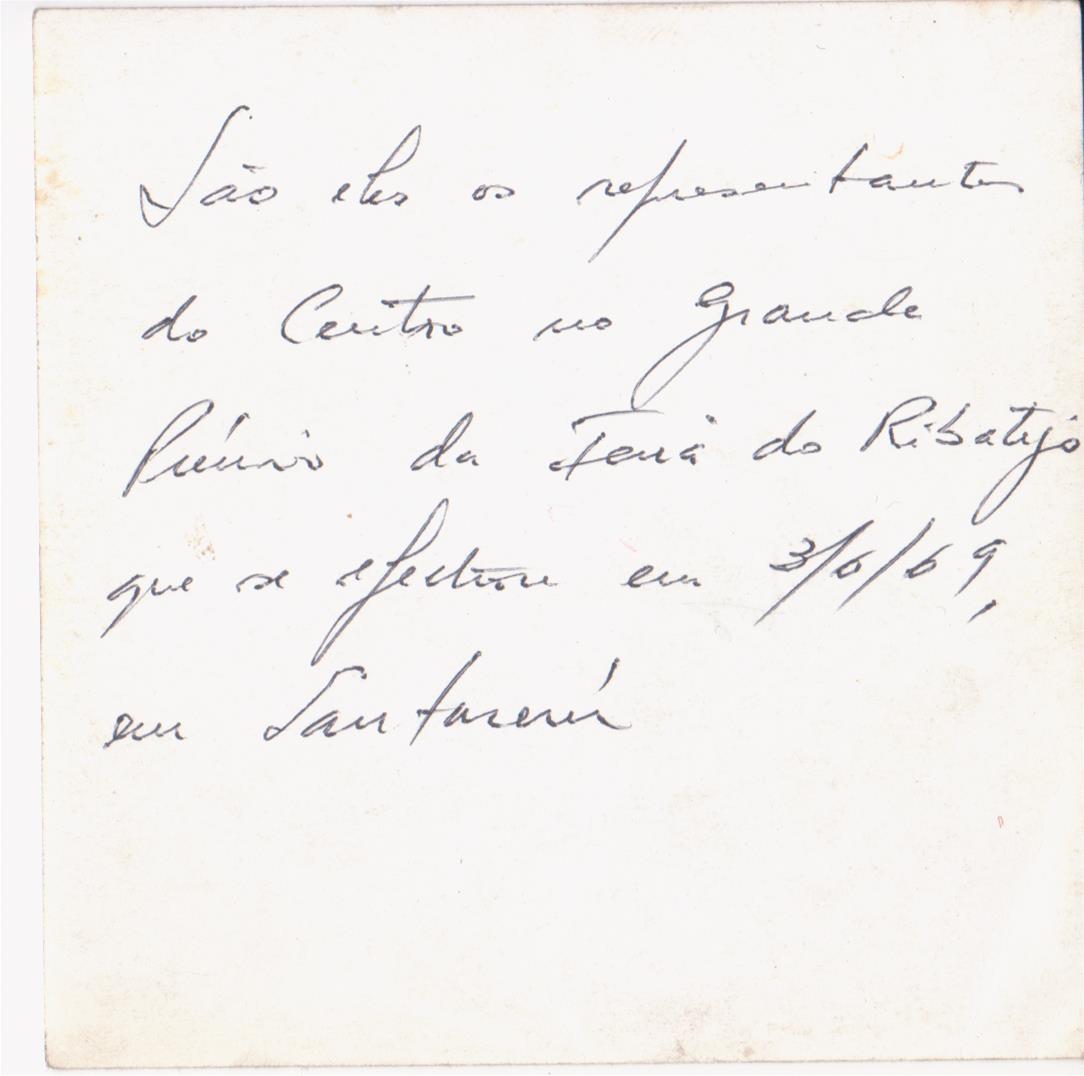 São eles os representantes
do Centro no Grande
Prémio da Feira do Ribatejo
que se efectuou em 3/6/69,
em Santarém